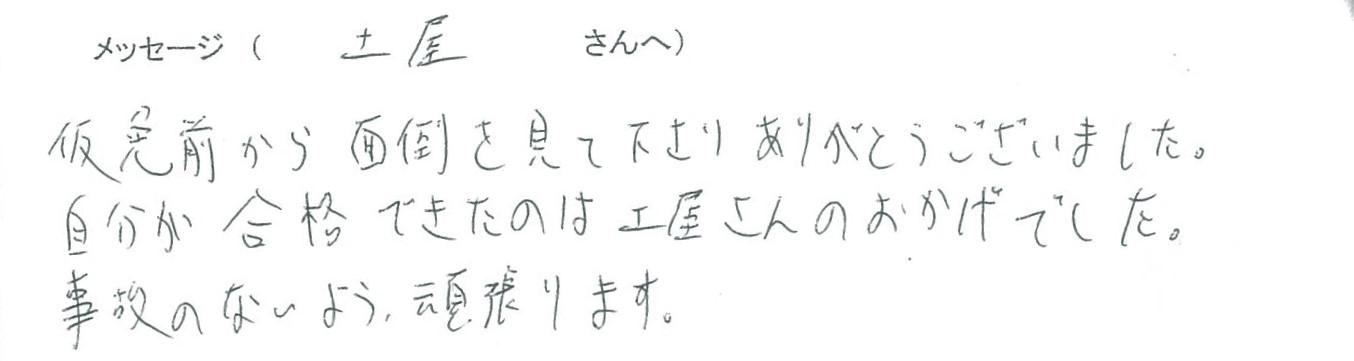 メッセージ( 土屋 さんへ)
仮免前から面倒を見て下さりありがとうございました。
自分が合格できたのは土屋さんのおかげでした。
事故のないよう、頑張ります。